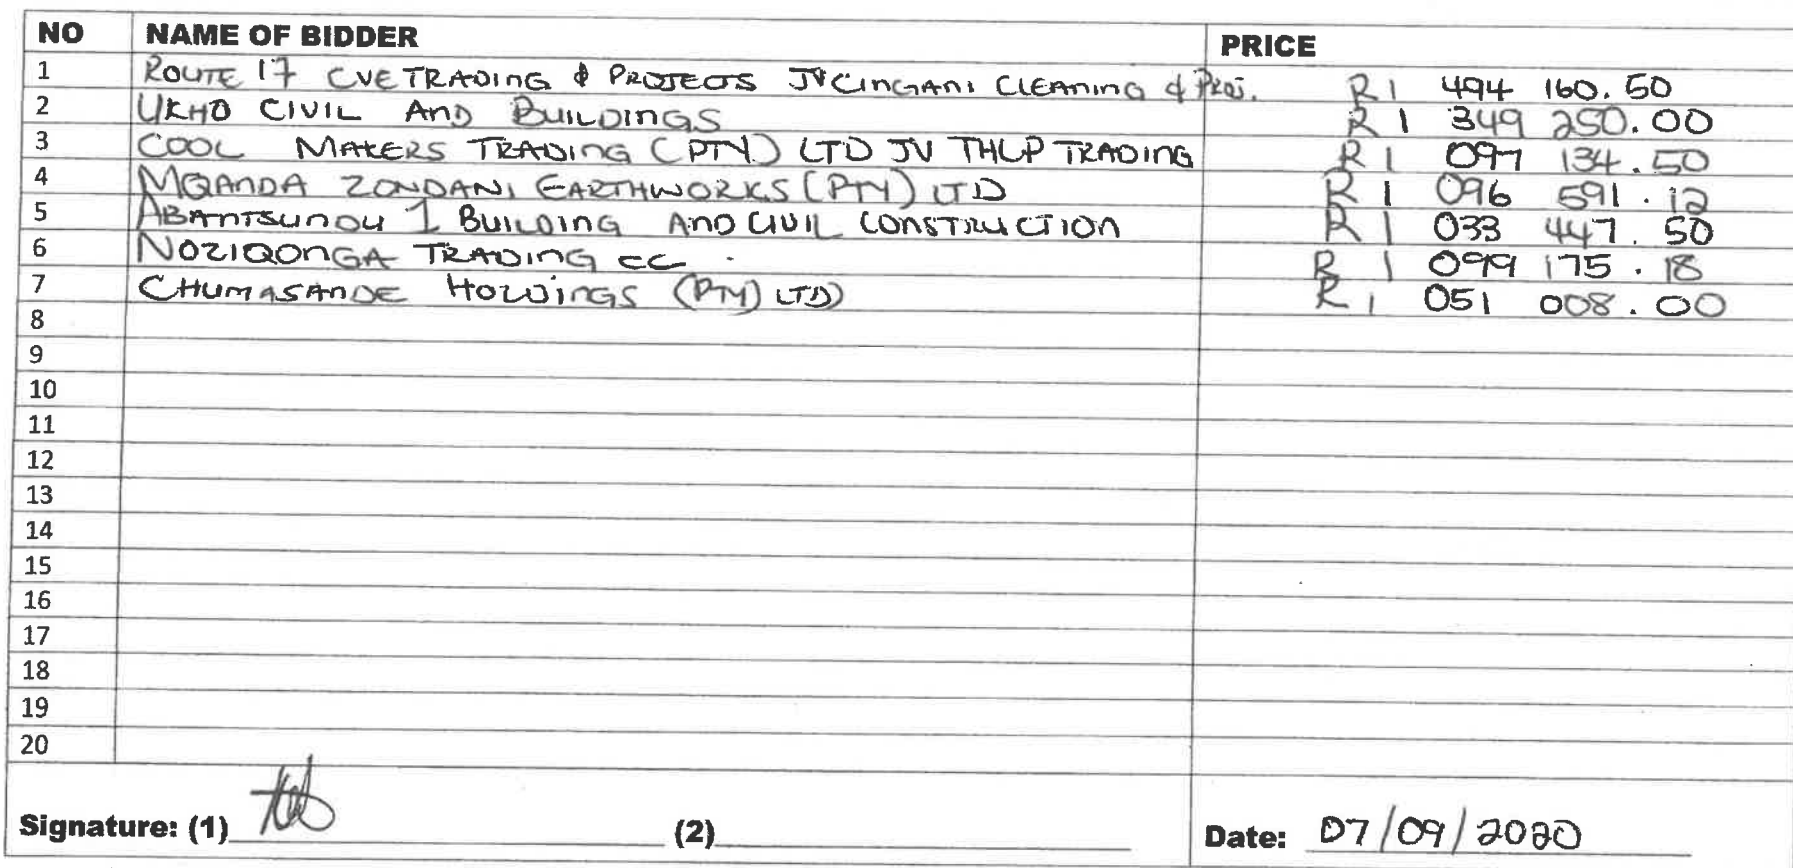 NO NAME OF BIDDER PRICE
1 ROUTE 17 CVE TRADING & PROJECTS JV CINGANI CLEANING & PROJ. R1 494 160.50
2 UKHO CIVIL AND BUILDINGS R1 349 250.00
3 COOL MAKERS TRADING (PTY) LTD JV THLP TRADING R1 097 134.50
4 MQANDA ZONDANI EARTHWORKS (PTY) LTD R1 096 591.12
5 ABANTSUNDU 1 BUILDING AND CIVIL CONSTRUCTION R1 033 447.50
6 NOZIQONGA TRADING CC R1 099 175.18
7 CHUMASANDE HOLDINGS (PTY) LTD) R1 051 008.00
8
9
10
11
12
13
14
15
16
17
18
19
20
Signature: (1) (2) Date: 07/09/2020